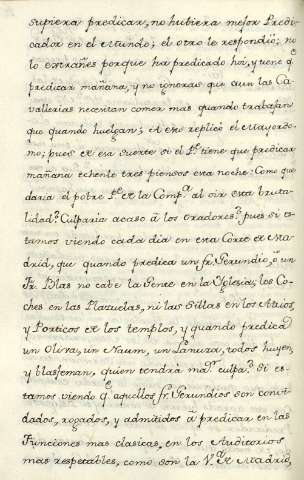 supiera predicar, no hubiera mejor Predi-
cador en el Mundo; el otro le respondio; no
lo estrañes porque ha predicado hoi, y tiene q.e
predicar mañana, y no ignoras que aun las Ca-
vallerias necesitan comer mas quando trabajan
que quando huelgan; A esto replicó el Mayordo-
mo; pues de esa suerte si el P.e tiene que predicar
mañana echenle tres piensos esta noche. Como que-
daria el pobre P.e de la Comp.a al oir esta bruta-
lidad? Culparia acaso á los oradores? pues si es-
tamos viendo cada dia en esta Corte de Ma-
drid, que quando predica un fr. Gerundio, ó un
Fr. Blas no cabe la Gente en la Yglesia; los Co-
ches en las Plazuelas, ni las Sillas en los Atrios,
y Porticos de los templos, y quando predica
un Oliva, un Naum, un todos huyen,
y blasfeman, quien tendrá mas culpa? Si es-
tamos viendo q.e aquellos fr. Gerundios son convi-
dados, rogados, y admitidos á predicar en las
Funciones mas clasicas, en los Auditorios
mas respetables, como son la V.a de Madrid,